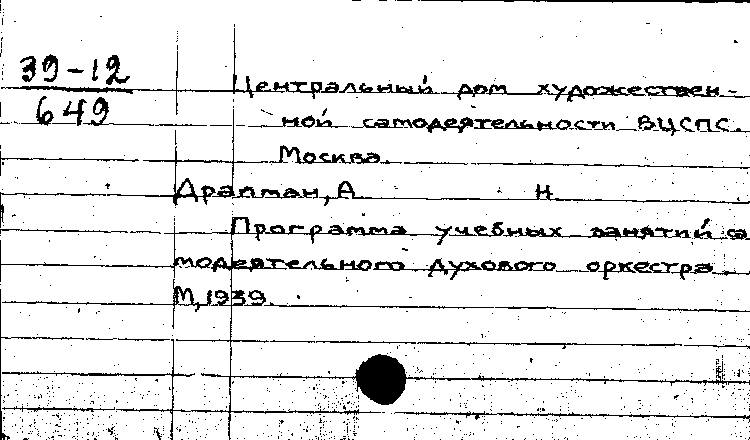 39-12
649
Центральный дом художествен-
ной самодеятельности ВЦСПС.
Москва.
Драпман, А Н
Программа учебных занятий са
модеятельного духового оркестра
М, 1939.